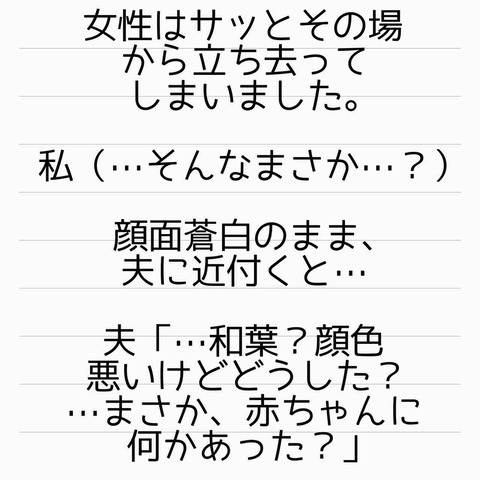 女性はサッとその場
から立ち去って
しまいました。
私（…そんなまさか…？）
顔面蒼白のまま、
夫に近付くと…
夫「…和葉？顔色
悪いけどどうした？
…まさか、赤ちゃんに
何かあった？」